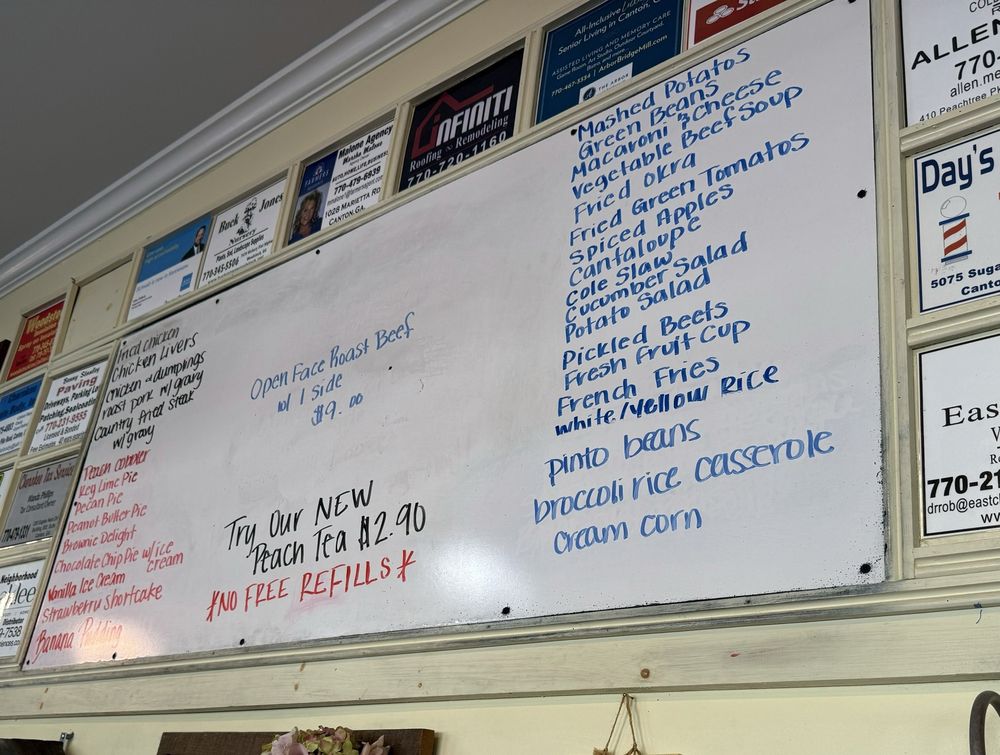 Fried chicken
Chicken Livers
chicken & dumplings
roast pork w/ gravy
Country fried steak
w/ gravy
Pecan Pie
Key Lime Pie
Peanut Butter Pie
Brownie Delight
Chocolate Chip Pie w/ice
cream
Vanilla Ice Cream
Strawberry shortcake
Banana Pudding
Open Face Roast Beef
w/ 1 side
$9.00
Try Our NEW
Peach Tea $2.90
*NO FREE REFILLS*
Mashed Potatos
Green Beans
Macaroni & cheese
Vegetable Beef Soup
Fried okra
Fried Green Tomatos
Spiced Apples
Cantaloupe
Cole Slaw
Cucumber Salad
Potato Salad
Pickled Beets
Fresh Fruit Cup
French Fries
White/Yellow Rice
pinto beans
broccoli rice casserole
cream corn
All-Inclusive
Senior Living in Canton,
ASSISTED LIVING AND MEMORY CARE
770-467-5334 | ArborBridgeMill.com
THE ARBOR
INFINITI
Roofing & Remodeling
770-720-1160
FARMERS
Malone Agency
AUTO, HOME, LIFE, BUSINESS
770-479-6939
1028 MARIETTA RD
CANTON, GA.
Buck Jones
Nursery
770-345-5506
Paving
Driveways, Parking
Patching, Sealcoating
770-231-9555
Licensed & Bonded
Cherokee Tax Service
Wanda Phillips
770-479-1331
Neighborhood
Distributor
ALLEN
770-
allen.me
410 Peachtree Pk
Day's
5075 Suga
Canto
Eas
770-21
drrob@eastc